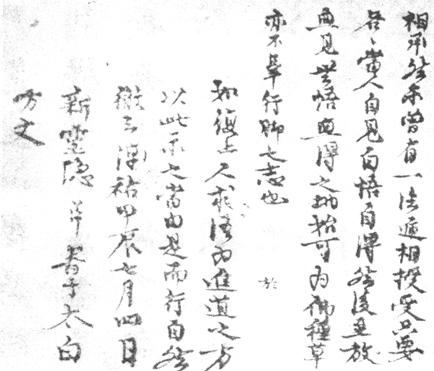 相承然未曾有一法逓相授受只要
各々當人自見自悟自得然後放
無見無悟無得之地始可為佛種草
亦不辜行脚之志也 於
知復上人求語為進道之方
以此示之當由是而行自然
徹去淳祐甲辰七月四日
新靈隐書于太白
方丈